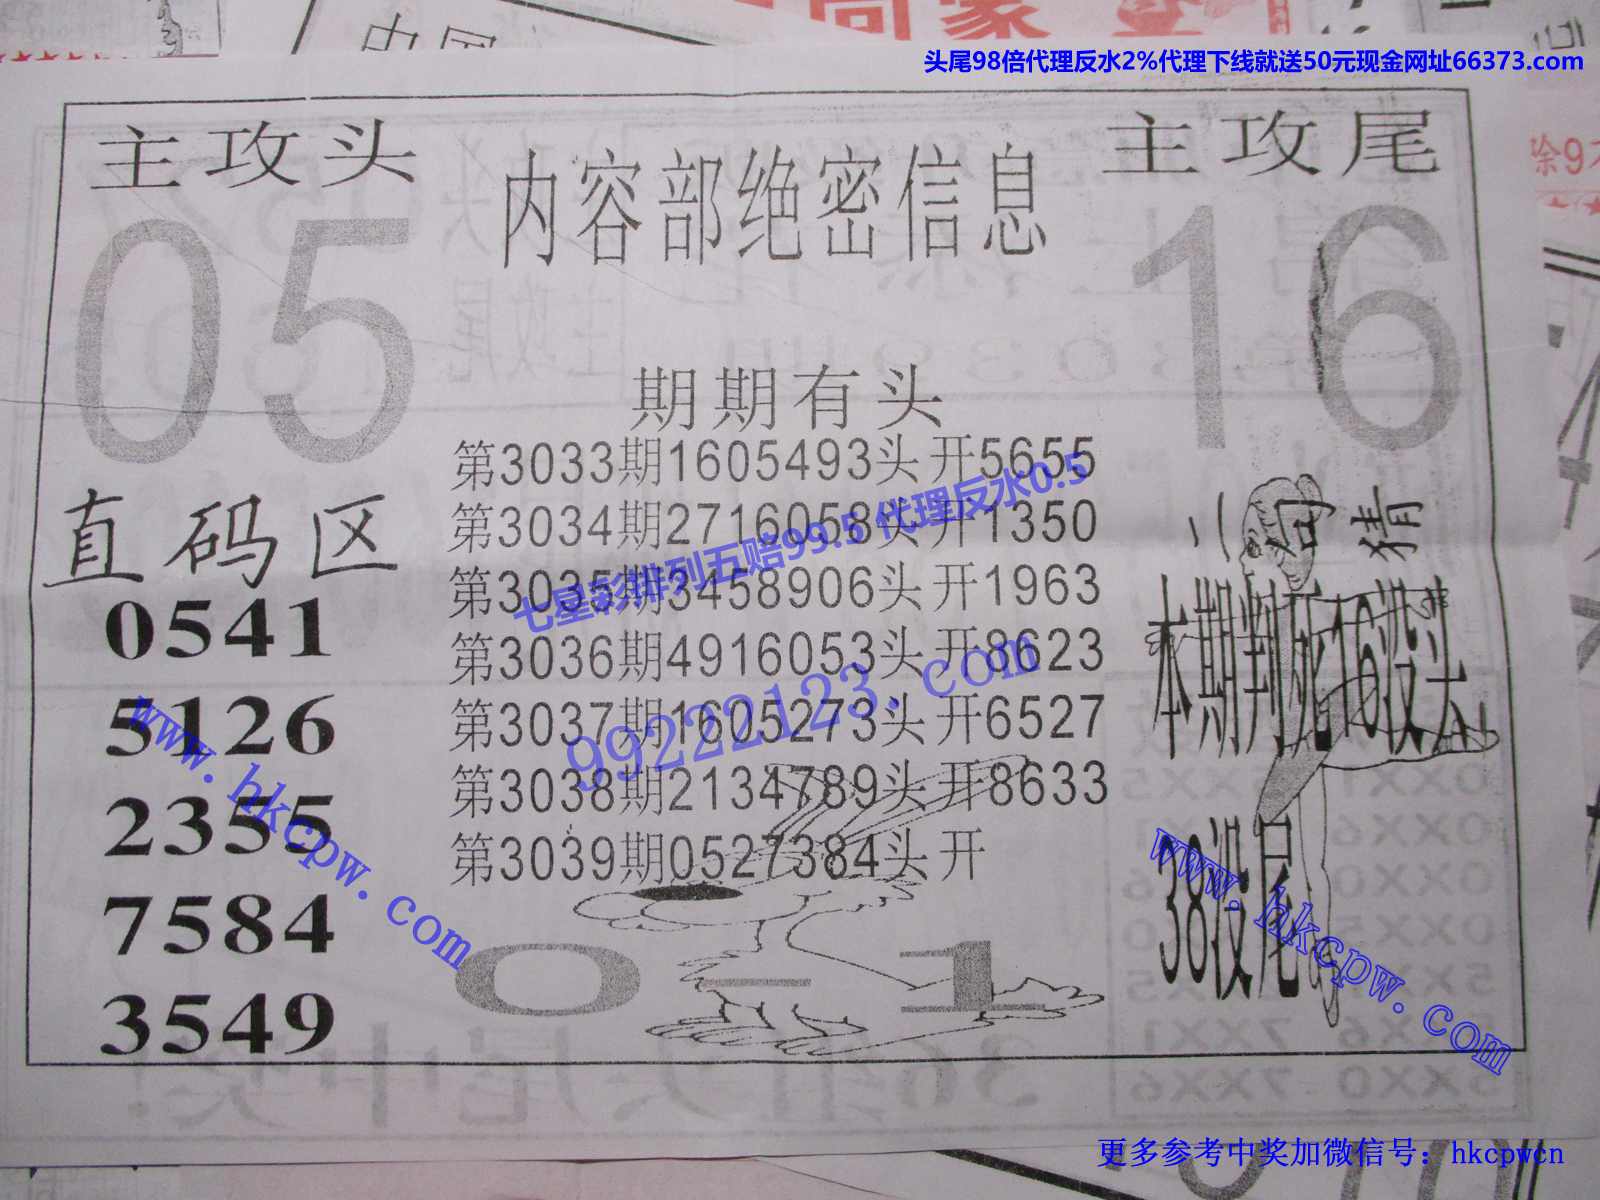 头尾98倍代理反水2%代理下线就送50元现金网址66373.com
主攻头
内容部绝密信息
主攻尾
05
16
期期有头
第3033期1605493头开5655
第3034期2716058头开1350
第3035期3458906头开1963
第3036期4916053头开8623
第3037期1605273头开6527
第3038期2134789头开8633
第3039期0527384头开
七星彩排列五赔99.5 代理反水0.5
99222123.com
直码区
0541
5126
2355
7584
3549
www.hkcpw.com
0—1
二句猜
本期判死16没头
38没尾
www.hkcpw.com
除9
更多参考中奖加微信号：hkcpwcn